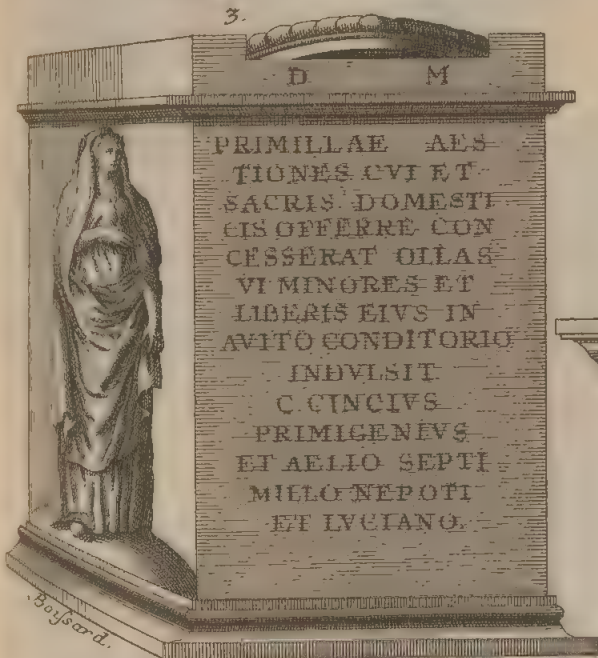 3.
D M
PRIMILLAE AES
TIONES CVI ET
SACRIS DOMESTI
CIS OFFERRE CON
CESSERAT OLLAS
VI MINORES ET
LIBERIS EIVS IN
AVITO CONDITORIO
INDVLSIT
C. CINCIVS
PRIMIGENIVS
ET AELIO SEPTI
MILLO NEPOTI
ET LVCIANO.
Boissard.